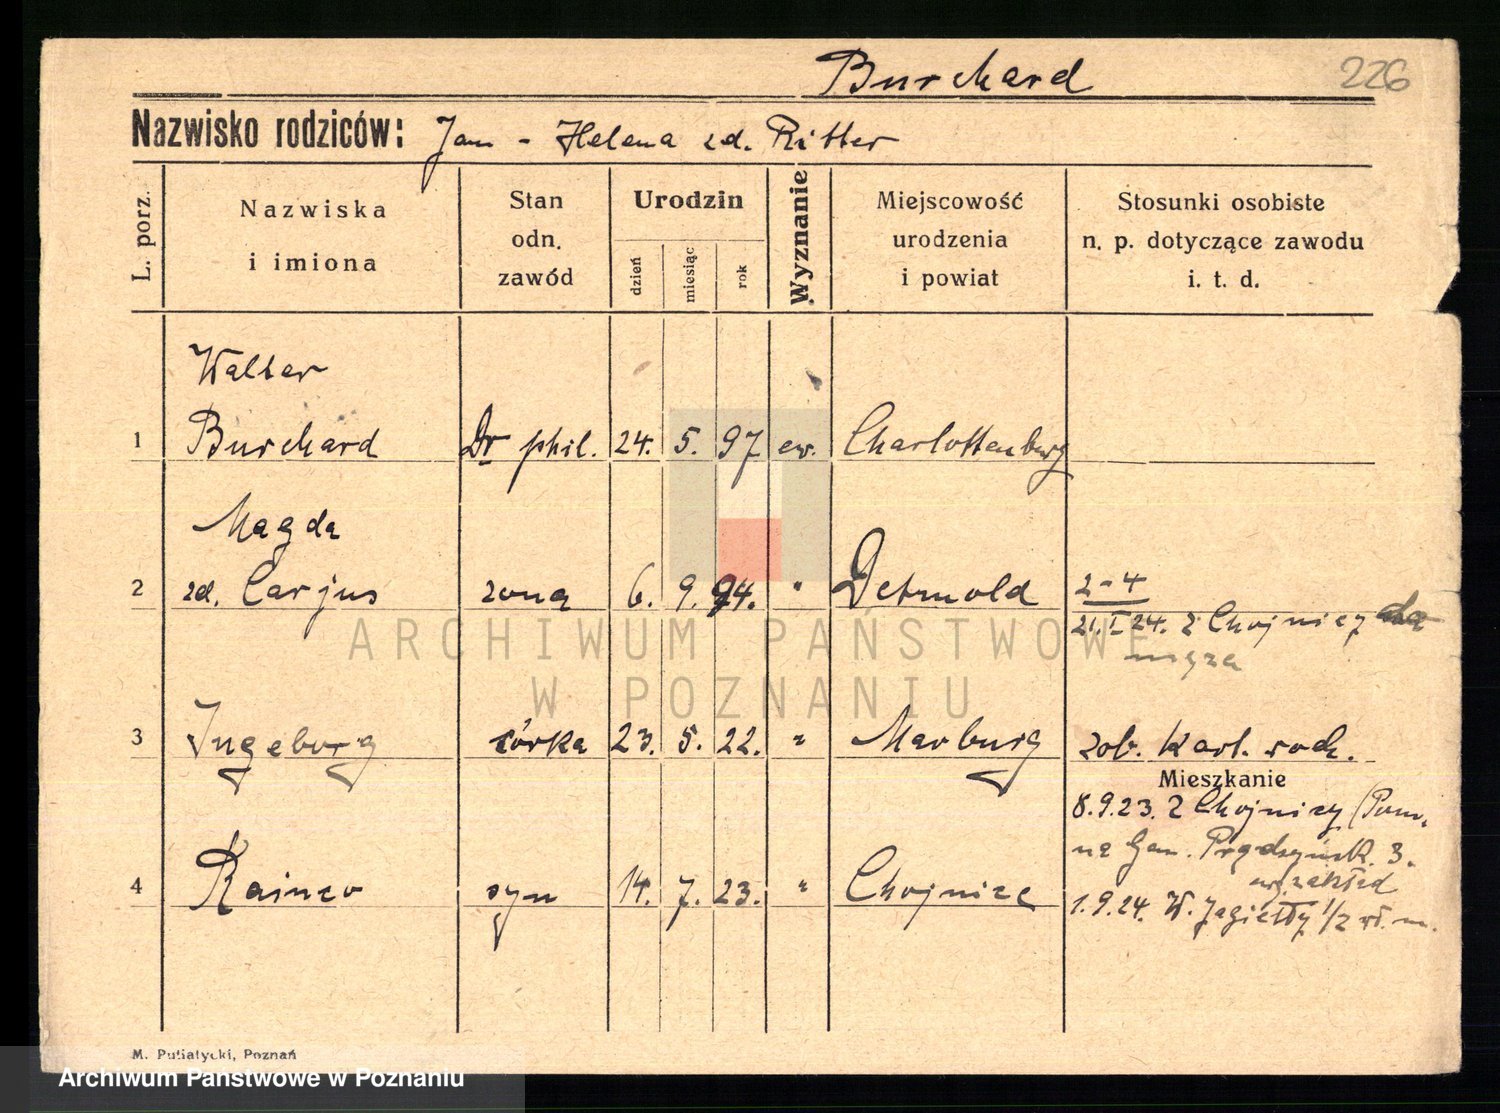 Burchard
226
Nazwisko rodziców: Jan - Helena zd. Ritter
L. porz.
Nazwiska
i imiona
Stan
odn.
zawód
Urodzin
dzień
miesiąc
rok
Wyznanie
Miejscowość
urodzenia
i powiat
Stosunki osobiste
n. p. dotyczące zawodu
i. t. d.
Walter
1 Burchard Dr phil. 24. 5. 97 ew. Charlottenburg
Magda
2 zd. Carjus żona 6. 9. 94. " Detmold 2-4
21.I 24. z Chojnicy do
męża
3 Ingeborg córka 23. 5. 22. " Marburg zob. Kart. rodz.
Mieszkanie
8.9.23. z Chojnicy (Pom.
na Gen. Prądzyńsk. 3.
4 Rainzo syn 14. 7. 23. " Chojnice
1.9.24. W. Jagiełły 1/2 wł. m.
ARCHIWUM PAŃSTWOWE
W POZNANIU
M. Putiatycki, Poznań
Archiwum Państwowe w Poznaniu